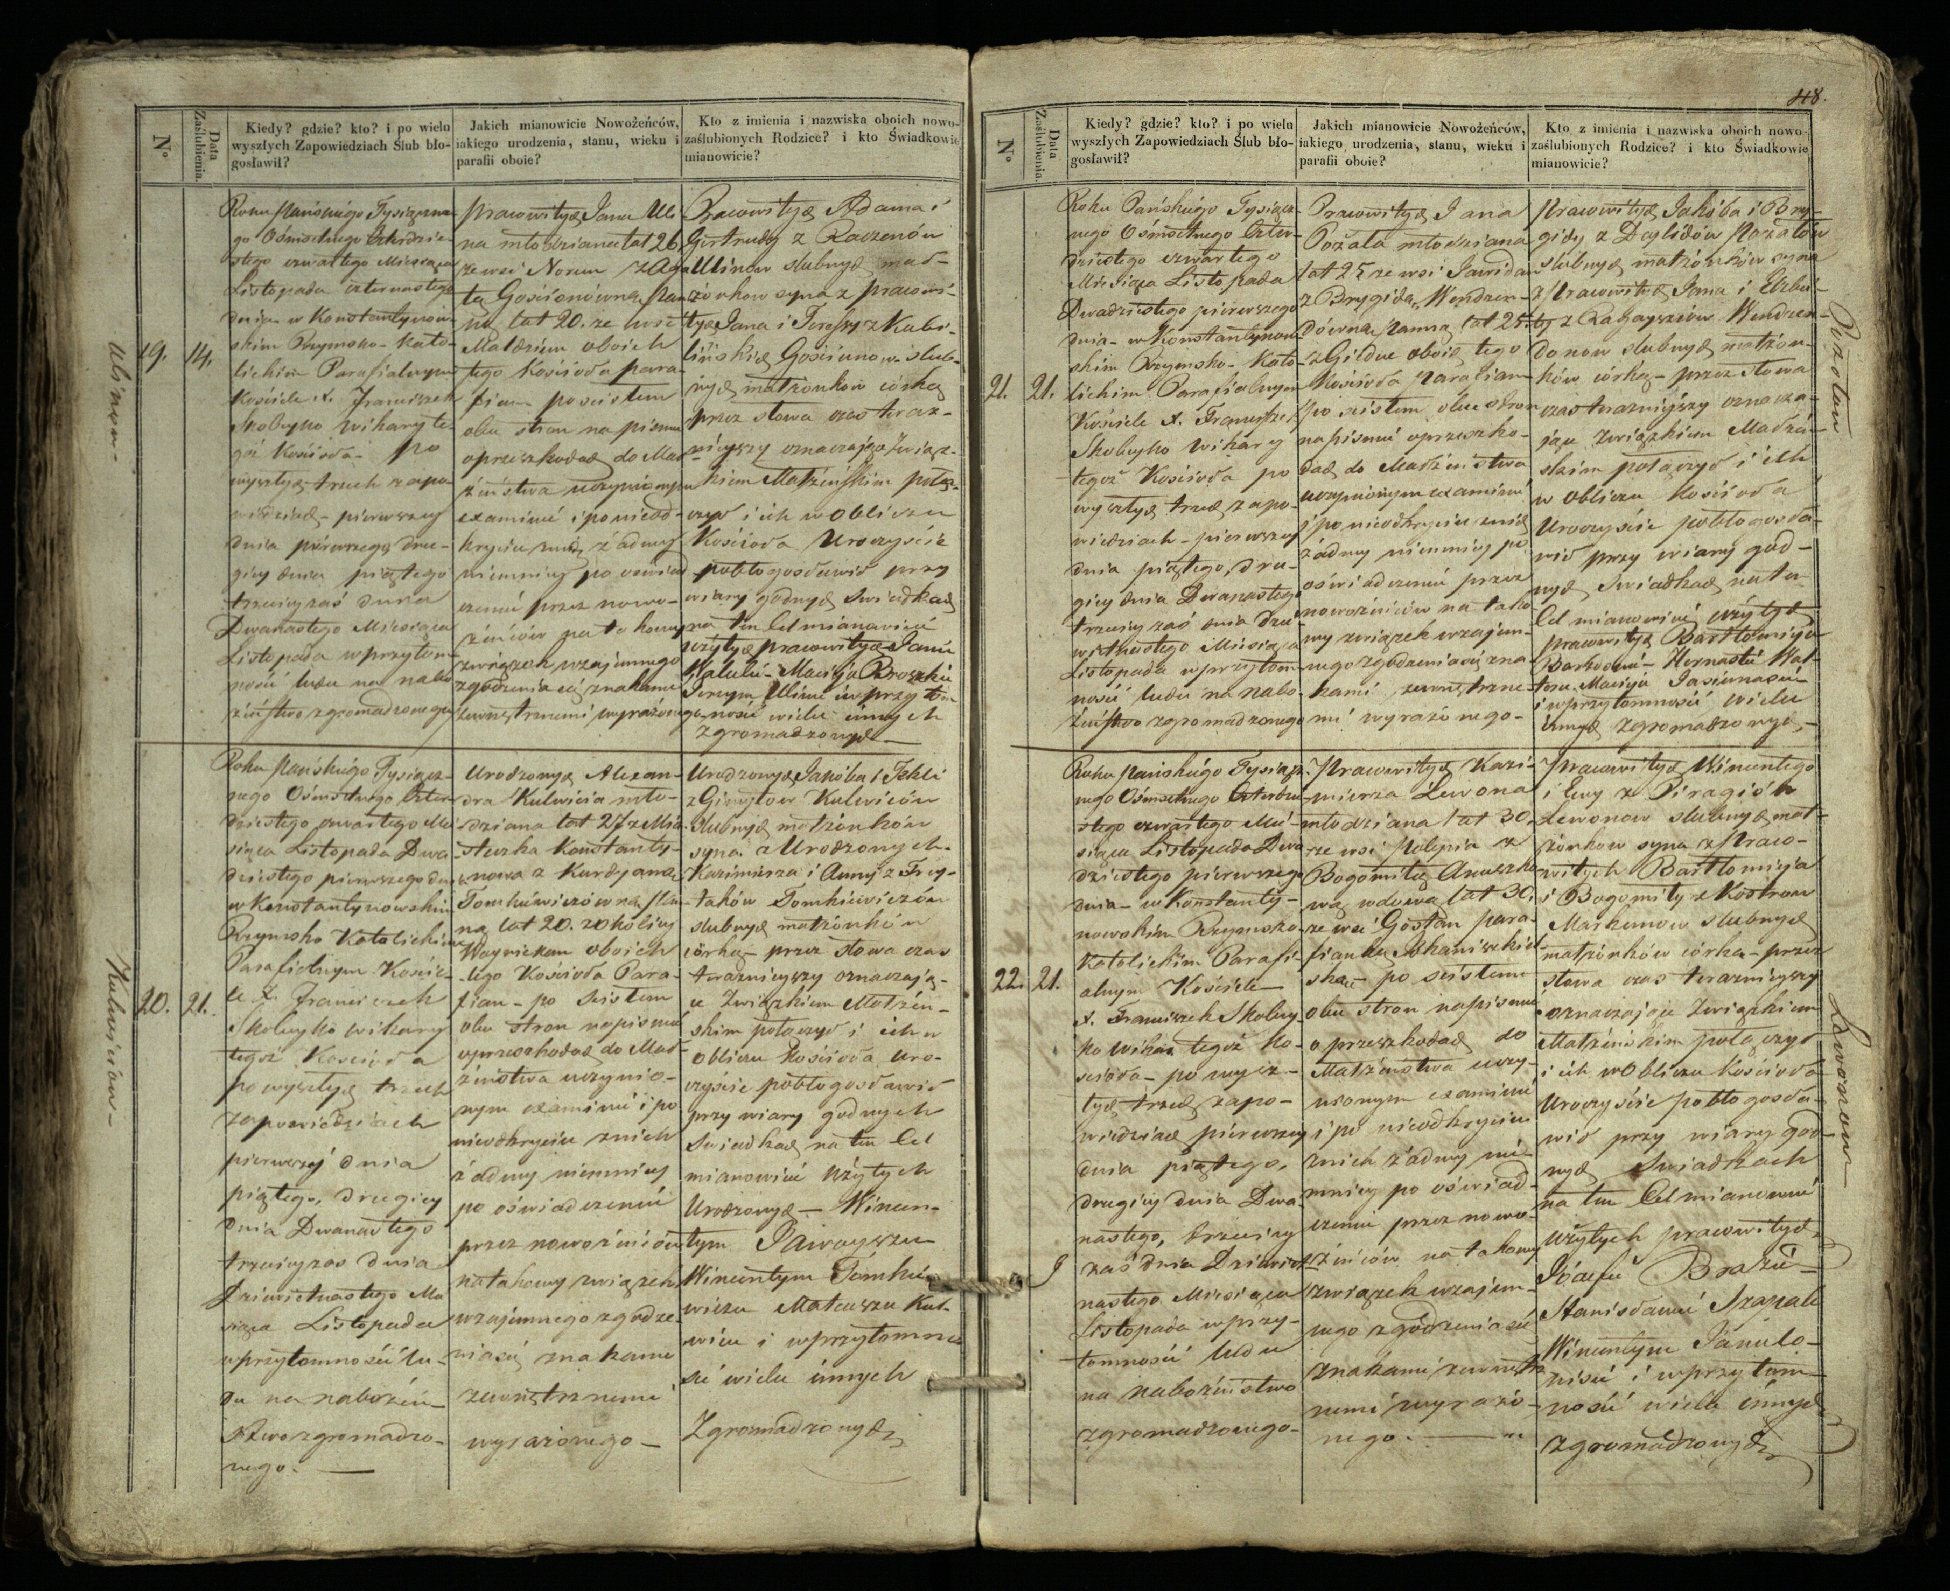 N°
Data Zaślubienia.
Kiedy? gdzie? kto? i po wielu
wyszłych Zapowiedziach Ślub bło-
gosławił?
Jakich mianowicie Nowożeńców,
iakiego urodzenia, stanu, wieku i
parafii oboie?
Kto z imienia i nazwiska oboich nowo-
zaślubionych Rodzice? i kto Świadkowie
mianowicie?
19.
14.
Ulinow
Roku Pańskiego Tysiączne-
go Ośmsetnego Czterdzie-
stego czwartego Miesiąca
Listopada czternastego
dnia w Konstantynow-
skim Rzymsko-Kato-
lickim Parafialnym
Kościele X. Franciszek
Skobeyko Wikary te-
goż Kościoła po
wyszłych trzech zapo-
wiedziach pierwszey
dnia
giey dnia piątego
trzeciey zaś dnia
Dwanastego Miesiąca
Listopada w przytom-
ności ludu na nabo-
żeństwo zgromadzonego
Prawowitych Jana Uli
na młodziana lat 26
ze wsi Norun z Aga
tą Gościonówną Pan
ną lat 20. ze wsi
oboich
tego Kościoła para-
fian po scisłem
obu stron na pismie
o przeszkodach do Mał
żeństwa uczynionym
examinie i po nieod-
kryciu żadney
niemniey po oswiad
czeniu przez nowo-
żeńców na takowy
związek wzajemnego
zgodzenia się znakami
zewnętrznemi wyrażonego
Prawowitych Adama i
Gertrudy z Raczenów
Ulinów slubnych mał-
żonkow syna z prawowi-
tych Jana i Teressy z Kubi-
lińskich Gościunow slub-
nych małżonkow córkę
przez słowa czas teraz-
nieyszy oznaczające Związ-
kiem Małżeńskim połą-
czył i ich w Obliczu
Kościoła Uroczyście
pobłogosławił przy
wiary godnych Swiadkach
na ten Cel mianowicie
użytych prawowitych Janie
Macieju
Jerzym Ulinie i w przytom
ności wielu innych
zgromadzonych
20.
21.
Kulwiciow
Roku Pańskiego Tysiącz-
nego Ośmsetnego Czter-
dziestego czwartego Mie
siąca Listopada Dwa
dziestego pierwszego dnia
w Konstantynowskim
Rzymsko Katolickim
Parafialnym Koście-
le X. Franciszek
Skobeyko wikary
tegoż Kościoła
po wyszłych trzech
zapowiedziach
pierwszey dnia
piątego, drugiey
dnia Dwanastego
trzeciey zas dnia
Dziewietnastego Mie
siąca Listopada
w przytomności lu-
du na nabożeń
stwo zgromadzo-
nego.
Urodzonych Alexan-
dra Kulwicia mło-
dziana lat 27 z Mia
steczka Konstanty-
nowa z Kordyaną
Tomkiewiczówną Pan
ną lat 20. z okolicy
oboich
tego Kościoła Para-
fian po scisłem
obu stron na pismie
o przeszkodach do Mał
żeństwa uczynio-
nym examinie i po
nieodkryciu z nich
żadney niemniey
po oświadczeniu
przez nowożeńców
na takowy związek
wzajemnego zgodze-
nia się znakami
zewnętrznemi
wyrażonego
Urodzonych Jakóba i Tekli
z Kulwiców
slubnych małżonków
syna z Urodzonych
Kazimierza i Anny z
Tomkiewiczów
slubnych małżonków
córkę przez słowa czas
teraznieyszy oznaczają-
ce Związkiem Małżeń-
skim połączył i ich w
obliczu Kościoła uro-
czyście pobłogosławił
przy wiary godnych
Swiadkach na ten Cel
mianowicie użytych
Urodzonych Wincen-
tym
Wincentym Tomkie
wiczu Mateuszu Kul
wiciu i w przytomno
ści wielu innych
Zgromadzonych
48.
N°
Data Zaślubienia.
Kiedy? gdzie? kto? i po wielu
wyszłych Zapowiedziach Ślub bło-
gosławił?
Jakich mianowicie Nowożeńców,
iakiego urodzenia, stanu, wieku i
parafii oboie?
Kto z imienia i nazwiska oboich nowo-
zaślubionych Rodzice? i kto Świadkowie
mianowicie?
21.
21.
Roku Pańskiego Tysiącz-
nego Ośmsetnego Czter-
dziestego czwartego
Miesiąca Listopada
Dwadziestego pierwszego
dnia w Konstantynow
skim Rzymsko-Kato
lickim Parafialnym
Kościele X. Franciszek
Skobeyko Wikary
tegoż Kościoła po
wyszłych trzech zapo-
wiedziach pierwszey
dnia piątego, dru-
giey dnia Dwanastego
trzeciey zaś dnia
Miesiąca
Listopada w przytom-
ności ludu na nabo-
żeństwo zgromadzonego
Prawowitych Jana
Pożała młodziana
lat 25 ze wsi
z Brygidą Wendzen-
dówną Panną lat 25
oboich tego
Kościoła Parafian
po scisłem obu stron
na pismie o przeszko-
dach do Małżeństwa
uczynionym examinie
i po nieodkryciu z nich
żadney niemniey po
oświadczeniu przez
nowożeńców na tako
wy związek wzajem-
nego zgodzenia się zna
kami zewnętrzne-
mi wyrażonego-
Prawowitych Jakóba i Bry-
gidy z Daylidów Pożałów
slubnych małżonków syna
z Prawowitych Jana i Elżbie-
ty z
donow slubnych małżon-
ków córkę przez słowa
czas teraznieyszy oznacza-
jące Związkiem Małżeń-
skim połączył i ich
w Obliczu Kościoła
Uroczyście pobłogosła-
wił przy wiary god-
nych Swiadkach na ten
Cel mianowicie użytych
prawowitych Bartłomieju
Macieju
i w przytomności wielu
innych Zgromadzonych
Pożałow
22.
21.
Roku Pańskiego Tysiącz-
nego Ośmsetnego Czterdzie
stego czwartego Mie-
siąca Listopada Dwa
dziestego pierwszego
dnia w Konstanty-
nowskim Rzymsko
Katolickim Parafi-
alnym Kościele
X. Franciszek Skobey-
ko Wikary tegoż Ko-
ścioła po wysz-
łych trzech zapo-
wiedziach pierwszey
dnia piątego,
drugiey dnia Dwa
nastego, trzeciey
zaś dnia Dziewięt
nastego Miesiąca
Listopada w przy-
tomności ludu
na nabożeństwo
zgromadzonego-
Prawowitych Kazi-
mierza Lewona
młodziana lat 30.
ze wsi z
Bogomiłą
wą wdową lat 30.
ze wsi para-
fianką
ską po scisłem
obu stron na pismie
o przeszkodach do
Małżeństwa uczy-
nionym examinie
i po nieodkryciu
z nich żadney nie-
mniey po oświad-
czeniu przez nowo-
żeńców na takowy
związek wzajem-
nego zgodzenia się
znakami zewnętrz
nemi wyrażo-
nego.
Prawowitych Wincentego
i Ewy z Piragiów
Lewonow slubnych mał-
żonkow syna z Prawo-
witych Bartłomieja
i Bogomiły z
slubnych
małżonków córkę przez
słowa czas teraznieyszy
oznaczające Związkiem
Małżeńskim połączył
i ich w Obliczu Kościoła
Uroczyście pobłogosła-
wił przy wiary god-
nych Swiadkach
na ten Cel mianowicie
użytych prawowitych
Józefie
Stanisławie
Wincentym
i w przytom-
ności wielu innych
Zgromadzonych
Lewonow